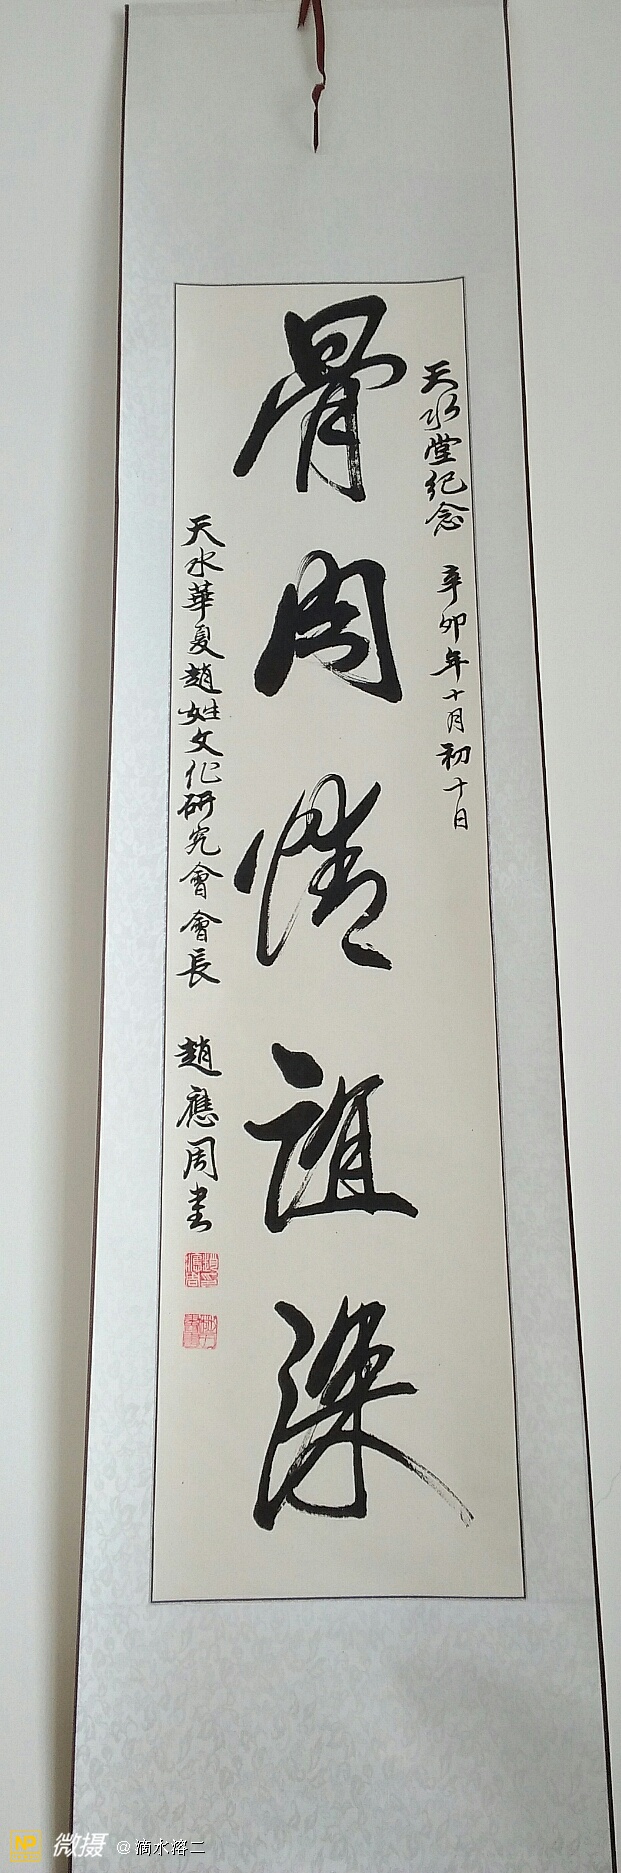 天水堂纪念 辛卯年十月初十日
骨肉情谊深
天水華夏趙姓文化研究會會長 趙應周书
微摄 @滴水熔二